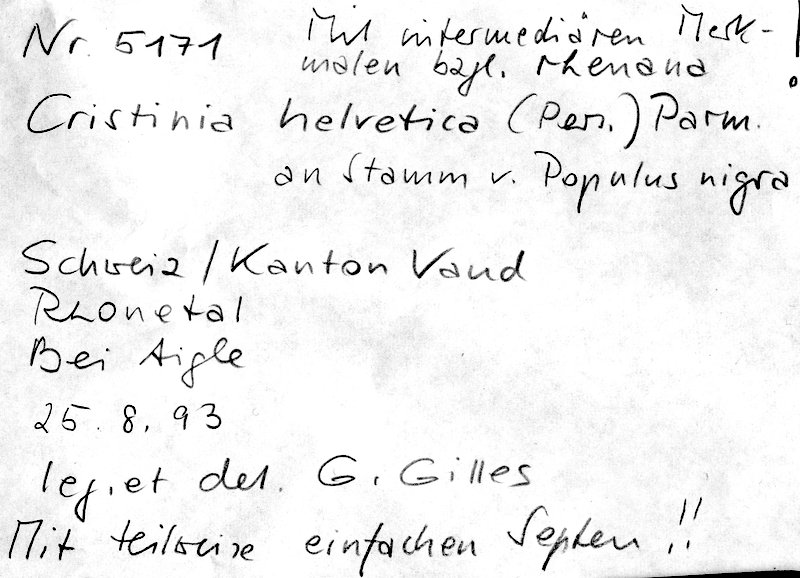 Nr. 5171
Mit intermediären Merk-
malen bzgl. rhenana !
Cristinia helvetica (Pers.) Parm.
an Stamm v. Populus nigra
Schweiz / Kanton Vaud
Rhonetal
Bei Aigle
25. 8. 93
leg. et det. G. Gilles
Mit teilweise einfachen Septen !!